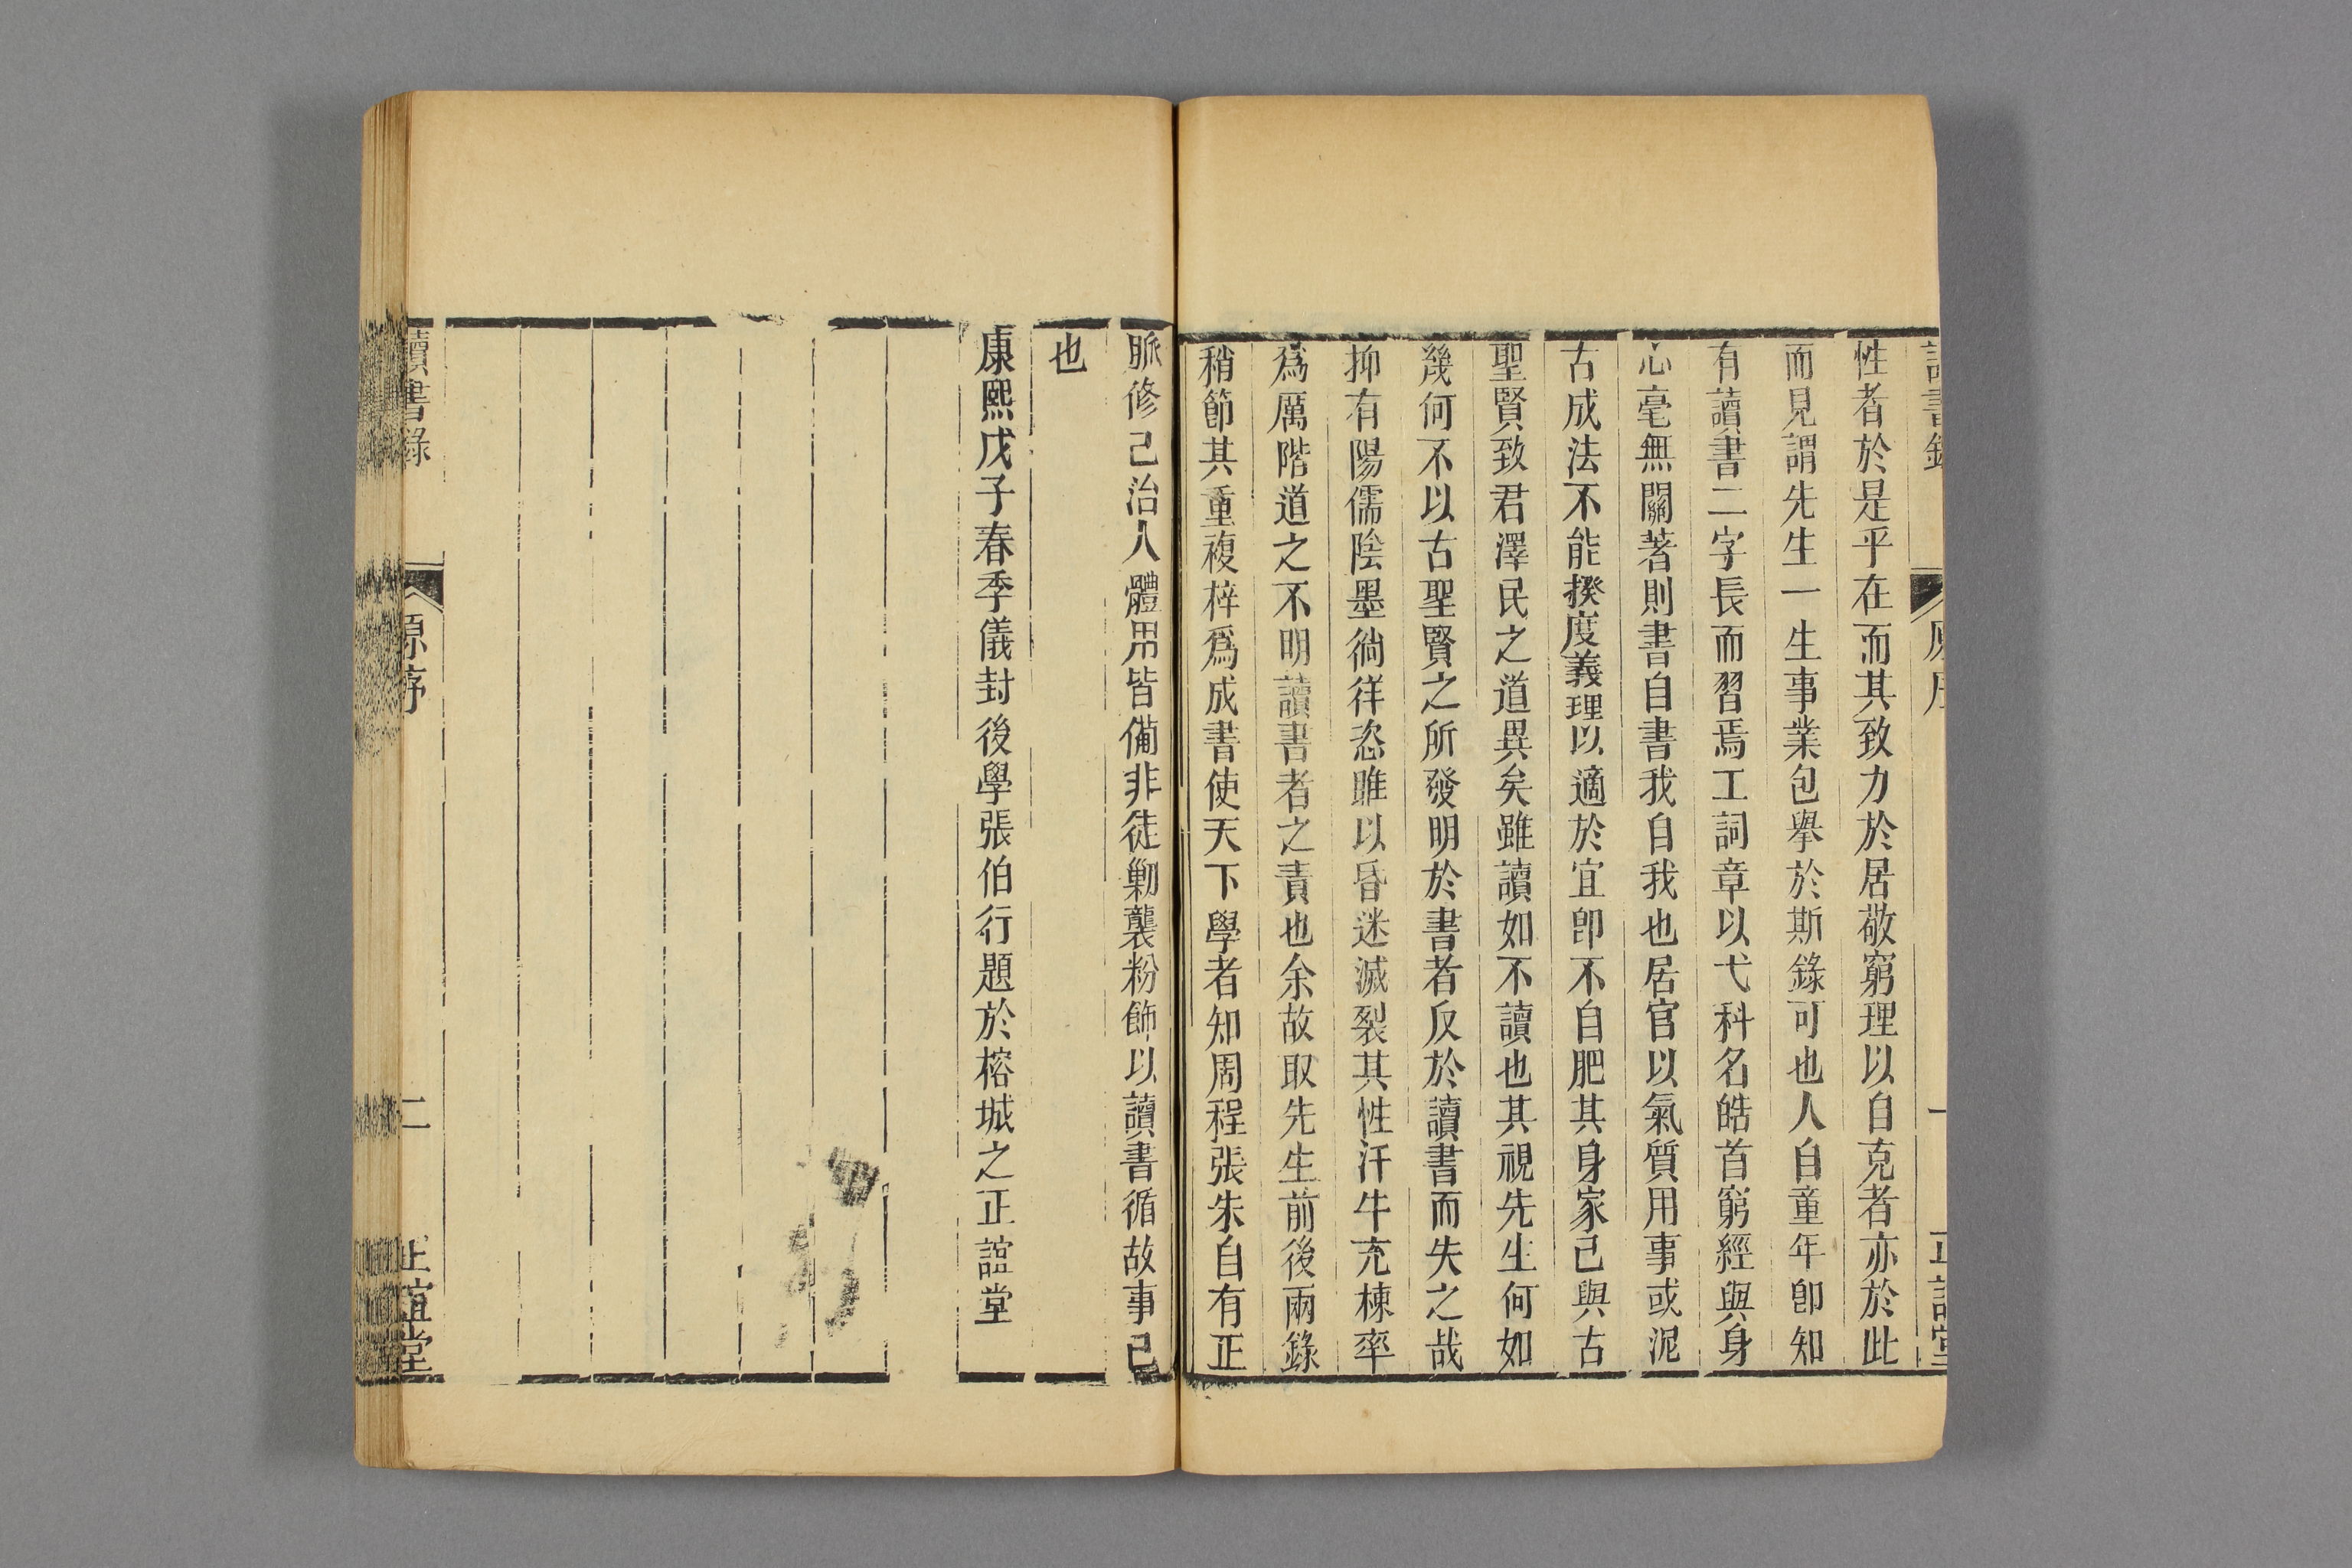 讀書錄 原序 一 正誼堂
性者於是乎在而其致力於居敬窮理以自克者亦於此
而見謂先生一生事業包舉於斯錄可也人自童年卽知
有讀書二字長而習焉工詞章以弋科名皓首窮經與身
心毫無關著則書自書我自我也居官以氣質用事或泥
古成法不能揆度義理以適於宜卽不自肥其身家己與古
聖賢致君澤民之道異矣雖讀如不讀也其視先生何如
幾何不以古聖賢之所發明於書者反於讀書而失之哉
抑有陽儒陰墨徜徉恣雎以昏迷滅裂其性汗牛充棟率
為厲階道之不明讀書者之責也余故取先生前後兩錄
稍節其重複梓爲成書使天下學者知周程張朱自有正
脈修己治人體用皆備非徒勦襲粉飾以讀書循故事已
也
康熙戊子春季儀封後學張伯行題於榕城之正誼堂
讀書錄 原序 二 正誼堂